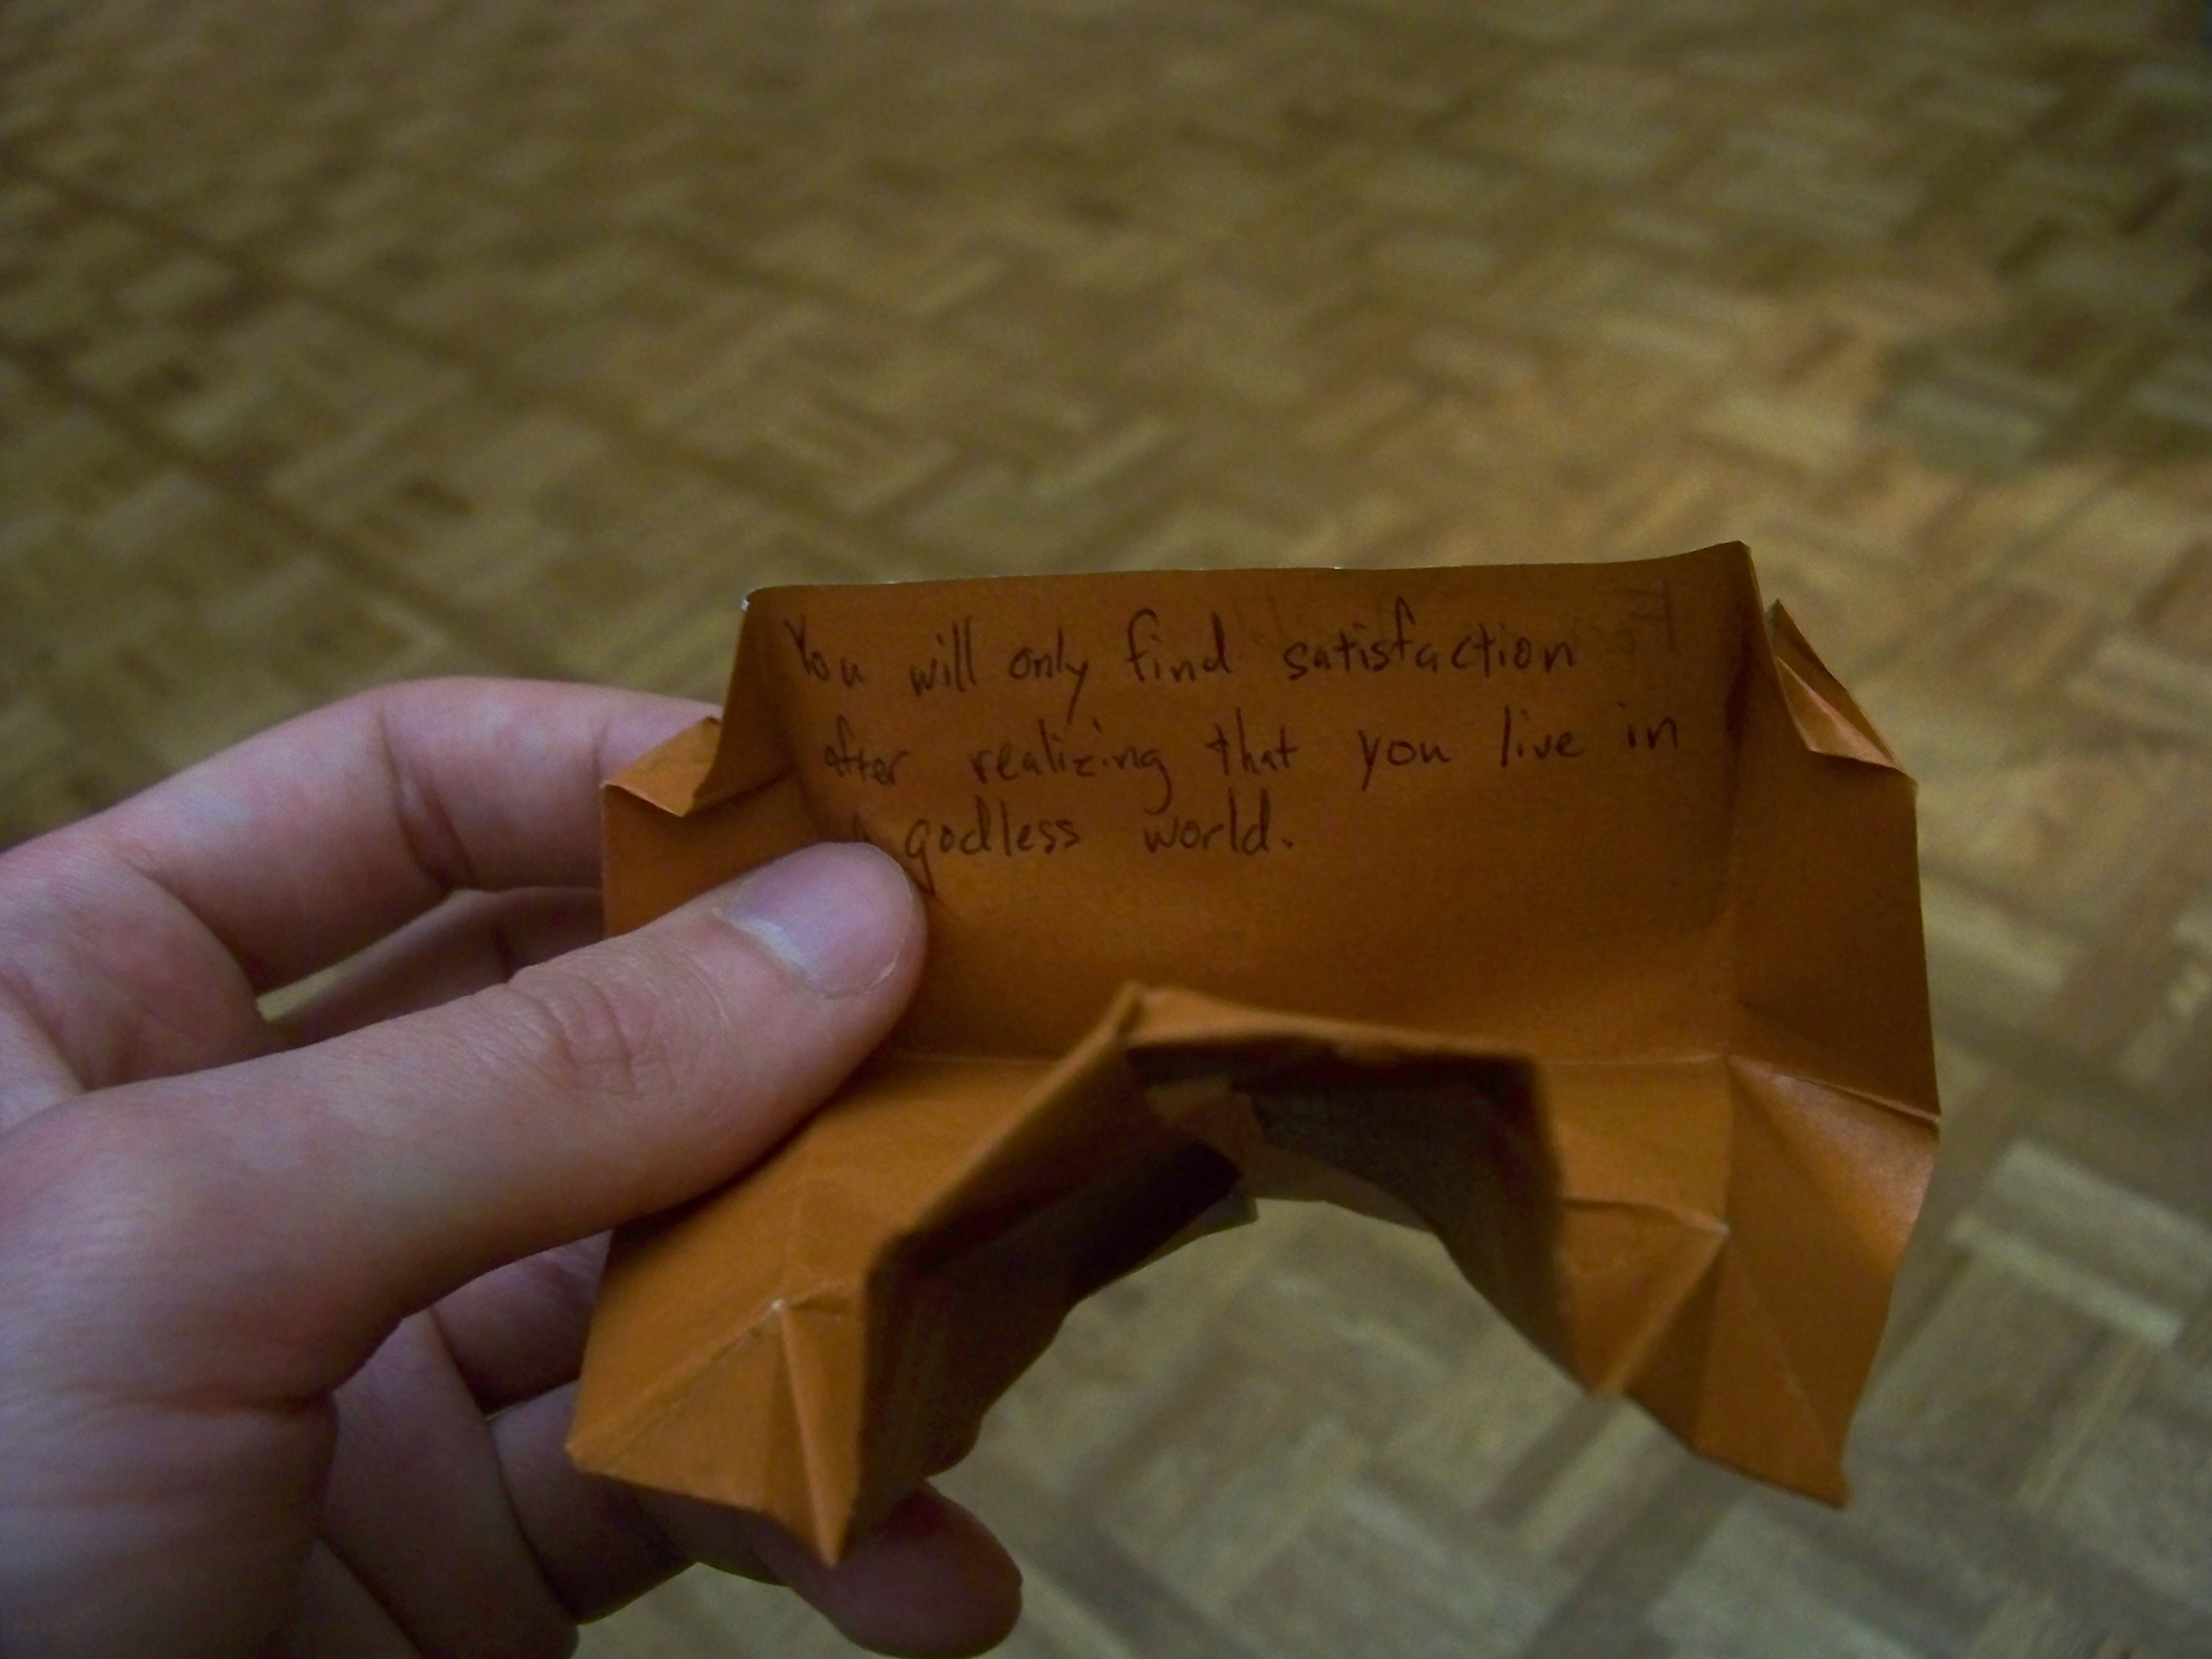 You will only find satisfaction
after realizing that you live in
a godless world.